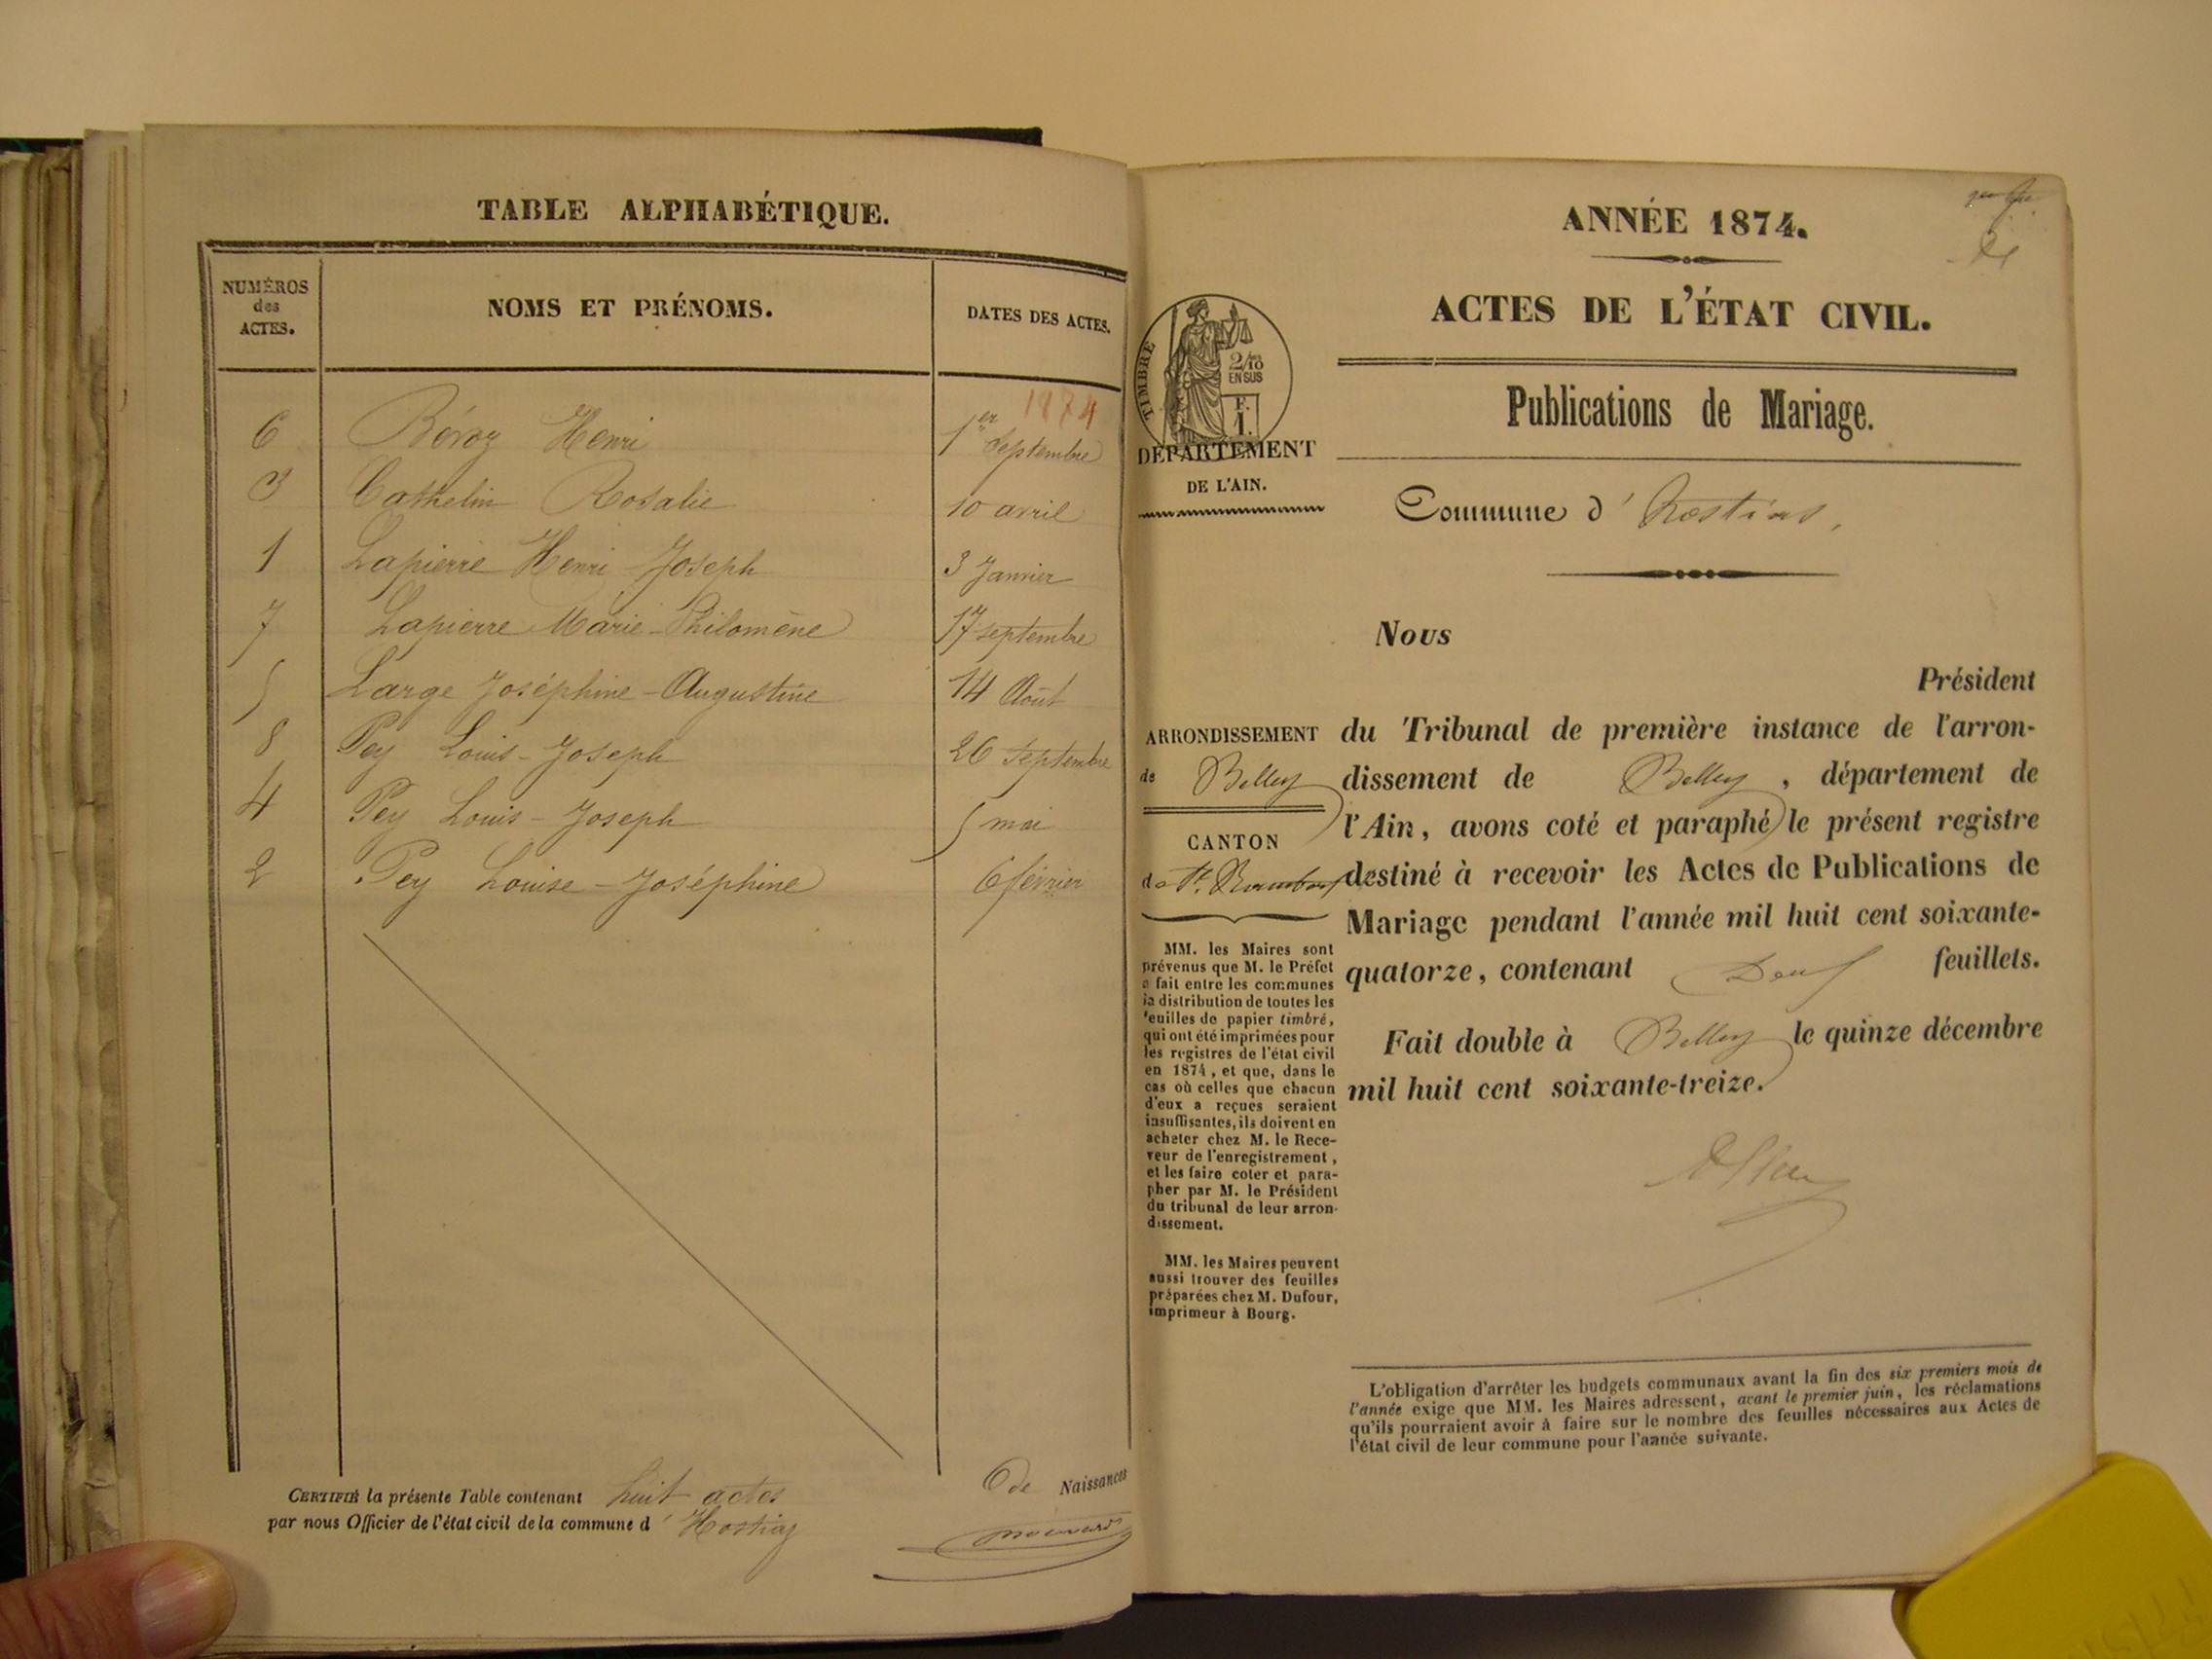 TABLE ALPHABÉTIQUE.
NUMÉROS
des
ACTES.
NOMS ET PRÉNOMS.
DATES DES ACTES.
1874
6 Béroz Henri 1er Septembre
3 Cathelin Rosalie 10 avril
1 Lapierre Henri-Joseph 3 Janvier
7 Lapierre Marie-Philomène 17 septembre
5 Large Joséphine-Augustine 14 Août
8 Pey Louis-Joseph 26 Septembre
4 Pey Louis-Joseph 5 mai
2 Pey Louise-Joséphine 6 février
CERTIFIÉ la présente Table contenant huit actes de Naissances
par nous Officier de l'état civil de la commune d' Hostiaz
ANNÉE 1874.
ACTES DE L'ÉTAT CIVIL.
TIMBRE
2/10
EN SUS
F.
1.
Publications de Mariage.
DÉPARTEMENT
DE L'AIN.
Commune d'
Nous
Président
du Tribunal de première instance de l'arron-
dissement de Belley, département de
l'Ain, avons coté et paraphé le présent registre
destiné à recevoir les Actes de Publications de
Mariage pendant l'année mil huit cent soixante-
quatorze, contenant Deux feuillets.
Fait double à Belley le quinze décembre
mil huit cent soixante-treize.
ARRONDISSEMENT
de Belley
CANTON
de St. Rambert
MM. les Maires sont
prévenus que M. le Préfet
a fait entre les communes
la distribution de toutes les
feuilles de papier timbré,
qui ont été imprimées pour
les registres de l'état civil
en 1874, et que, dans le
cas où celles que chacun
d'eux a reçues seraient
insuffisantes, ils doivent en
acheter chez M. le Rece-
veur de l'enregistrement,
et les faire coter et para-
pher par M. le Président
du tribunal de leur arron-
dissement.
MM. les Maires peuvent
aussi trouver des feuilles
préparées chez M. Dufour,
imprimeur à Bourg.
L'obligation d'arrêter les budgets communaux avant la fin des six premiers mois de
l'année exige que MM. les Maires adressent, avant le premier juin, les réclamations
qu'ils pourraient avoir à faire sur le nombre des feuilles nécessaires aux Actes de
l'état civil de leur commune pour l'année suivante.